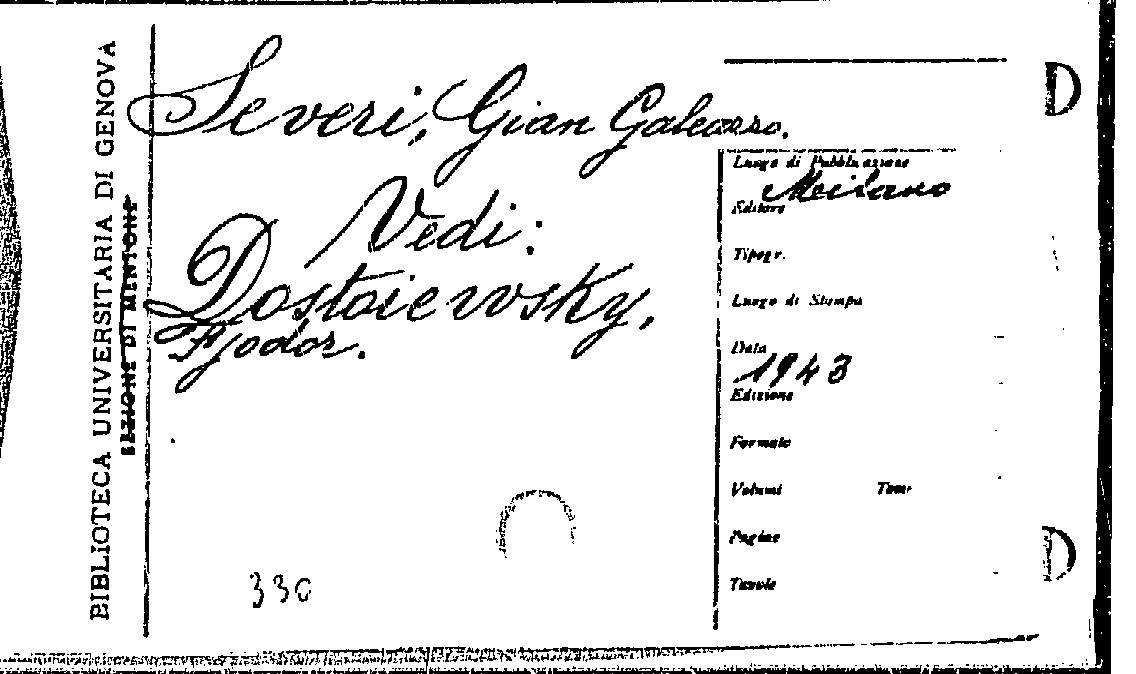 BIBLIOTECA UNIVERSITARIA DI GENOVA
SEZIONE DI MENTONE
Severi, Gian Galeazzo.
Vedi:
Dostoiewsky,
Fjodor.
330
Luogo di Pubblicazione
Milano
Editore
Tipogr.
Luogo di Stampa
Data
1943
Edizione
Formato
Volumi Tomi
Pagine
Tavole